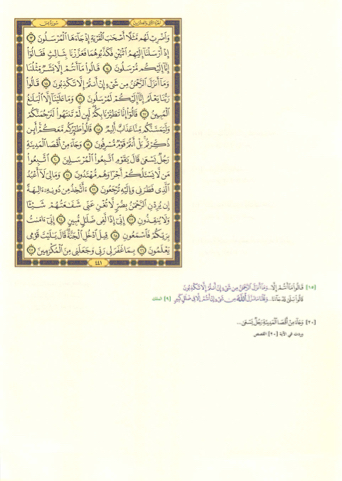 وَاضْرِبْ لَهُم مَّثَلًا أَصْحَابَ الْقَرْيَةِ إِذْ جَاءَهَا الْمُرْسَلُونَ ﴿١٣﴾
إِذْ أَرْسَلْنَا إِلَيْهِمُ اثْنَيْنِ فَكَذَّبُوهُمَا فَعَزَّزْنَا بِثَالِثٍ فَقَالُوا
إِنَّا إِلَيْكُم مُّرْسَلُونَ ﴿١٤﴾ قَالُوا مَا أَنتُمْ إِلَّا بَشَرٌ مِّثْلُنَا
وَمَا أَنزَلَ الرَّحْمَٰنُ مِن شَيْءٍ إِنْ أَنتُمْ إِلَّا تَكْذِبُونَ ﴿١٥﴾ قَالُوا
رَبُّنَا يَعْلَمُ إِنَّا إِلَيْكُمْ لَمُرْسَلُونَ ﴿١٦﴾ وَمَا عَلَيْنَا إِلَّا الْبَلَاغُ
الْمُبِينُ ﴿١٧﴾ قَالُوا إِنَّا تَطَيَّرْنَا بِكُمْ لَئِن لَّمْ تَنتَهُوا لَنَرْجُمَنَّكُمْ
وَلَيَمَسَّنَّكُم مِّنَّا عَذَابٌ أَلِيمٌ ﴿١٨﴾ قَالُوا طَائِرُكُم مَّعَكُمْ أَئِن
ذُكِّرْتُم بَلْ أَنتُمْ قَوْمٌ مُّسْرِفُونَ ﴿١٩﴾ وَجَاءَ مِنْ أَقْصَا الْمَدِينَةِ
رَجُلٌ يَسْعَىٰ قَالَ يَا قَوْمِ اتَّبِعُوا الْمُرْسَلِينَ ﴿٢٠﴾ اتَّبِعُوا
مَن لَّا يَسْأَلُكُمْ أَجْرًا وَهُم مُّهْتَدُونَ ﴿٢١﴾ وَمَا لِيَ لَا أَعْبُدُ
الَّذِي فَطَرَنِي وَإِلَيْهِ تُرْجَعُونَ ﴿٢٢﴾ أَأَتَّخِذُ مِن دُونِهِ آلِهَةً
إِن يُرِدْنِ الرَّحْمَٰنُ بِضُرٍّ لَّا تُغْنِ عَنِّي شَفَاعَتُهُمْ شَيْئًا
وَلَا يُنقِذُونِ ﴿٢٣﴾ إِنِّي إِذًا لَّفِي ضَلَالٍ مُّبِينٍ ﴿٢٤﴾ إِنِّي آمَنتُ
بِرَبِّكُمْ فَاسْمَعُونِ ﴿٢٥﴾ قِيلَ ادْخُلِ الْجَنَّةَ قَالَ يَا لَيْتَ قَوْمِي
يَعْلَمُونَ ﴿٢٦﴾ بِمَا غَفَرَ لِي رَبِّي وَجَعَلَنِي مِنَ الْمُكْرَمِينَ ﴿٢٧﴾
٤٤١
[١٥] قَالُوا مَا أَنتُمْ إِلَّا... وَمَا أَنزَلَ الرَّحْمَٰنُ مِن شَيْءٍ إِنْ أَنتُمْ إِلَّا تَكْذِبُونَ
قَالُوا بَلَىٰ قَدْ جَاءَنَا... وَقُلْنَا مَا نَزَّلَ اللَّهُ مِن شَيْءٍ إِنْ أَنتُمْ إِلَّا فِي ضَلَالٍ كَبِيرٍ [٩] الملك
[٢٠] وَجَاءَ مِنْ أَقْصَا الْمَدِينَةِ رَجُلٌ يَسْعَىٰ...
وردت في الآية [٢٠] القصص